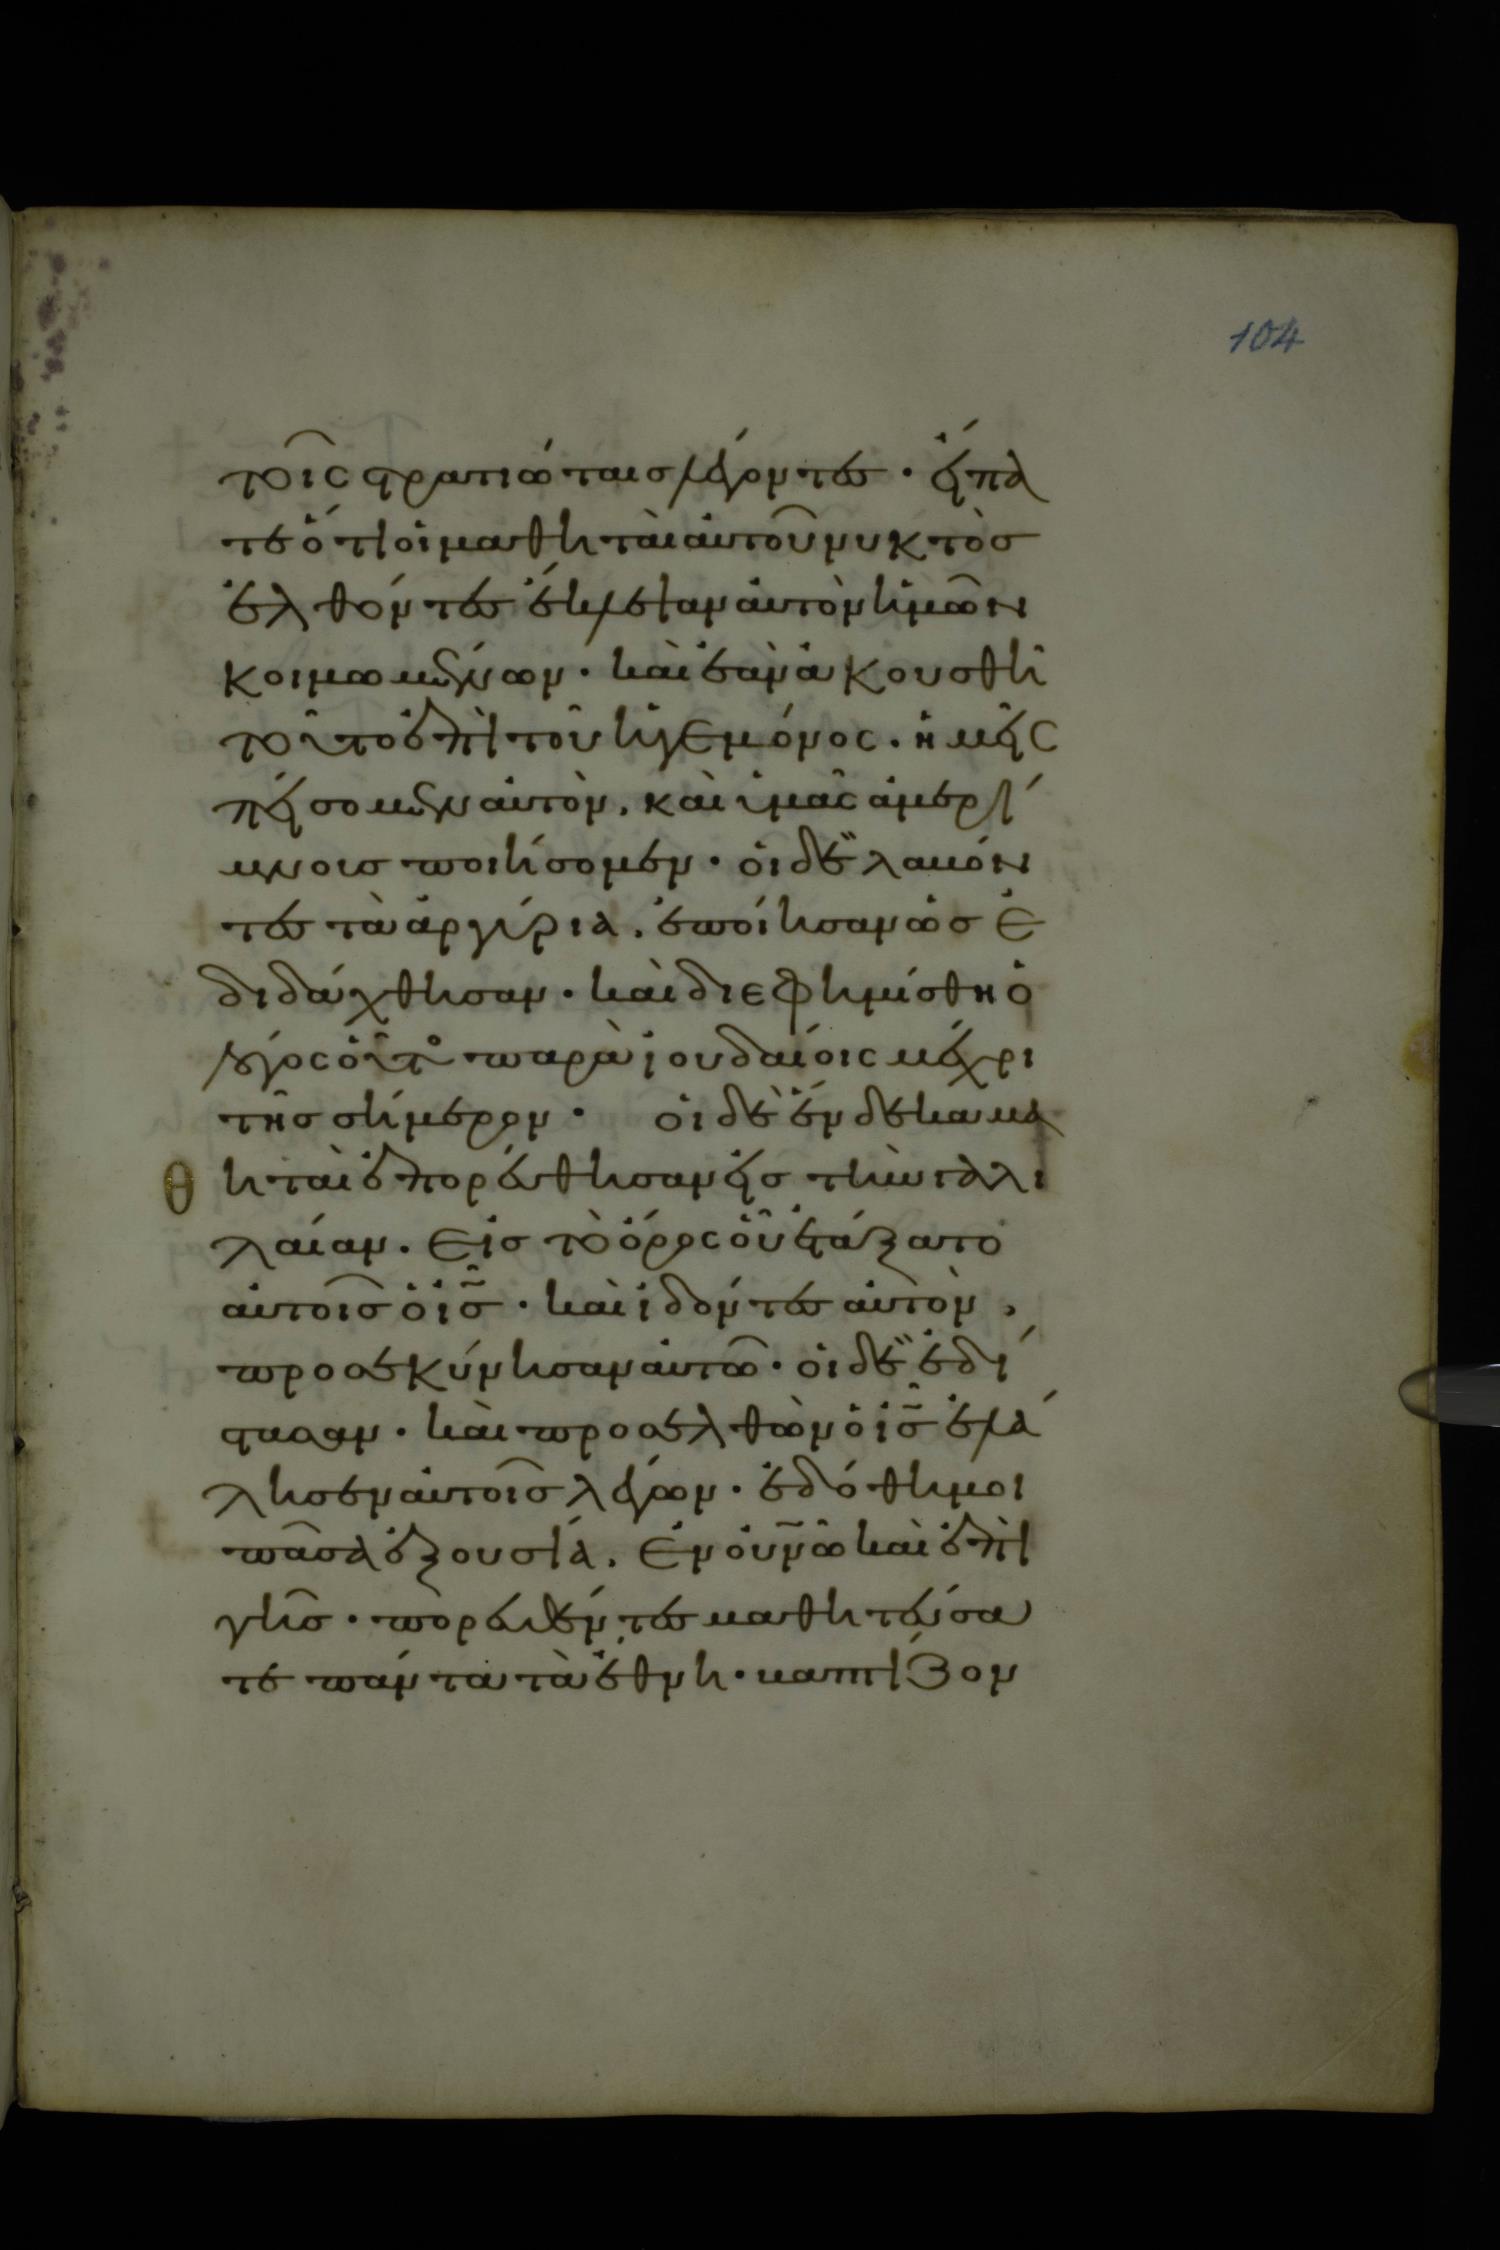 104
τοῖς στρατιώταις λέγοντες · εἴπα
τε ὅτι οἱ μαθηταὶ αὐτοῦ νυκτὸς
ἐλθόντες ἔκλεψαν αὐτὸν ἡμῶν
κοιμωμένων · καὶ ἐὰν ἀκουσθῆ
τοῦτο ἐπὶ τοῦ ἡγεμόνος · ἡμεῖς
πείσομεν αὐτὸν, καὶ ὑμᾶς ἀμερί
μνοις ποιήσομεν · οἱ δὲ λαβόν
τες τὰ ἀργύρια, ἐποίησαν ὡς ἐ
διδάχθησαν · καὶ διεφημίσθη ὁ
λόγος οὗτος παρὰ ἰουδαίοις μέχρι
τῆς σήμερον · οἱ δὲ ἕνδεκα μα
θηταὶ ἐπορεύθησαν εἰς τὴν γαλι
λαίαν. Εἰς τὸ ὄρος οὗ ἐτάξατο
αὐτοῖς ὁ ἰς̅ · καὶ ἰδόντες αὐτὸν,
προσεκύνησαν αὐτῶ · οἱ δὲ ἐδί
στασαν · καὶ προσελθὼν ὁ ἰς̅ ἐλά
λησεν αὐτοῖς λέγων · ἐδόθη μοι
πᾶσα ἐξουσία. Ἐν οὐνῶ καὶ ἐπὶ
γῆς · πορευθέντες μαθητεύσα
τε πάντα τὰ ἔθνη · βαπτίζον